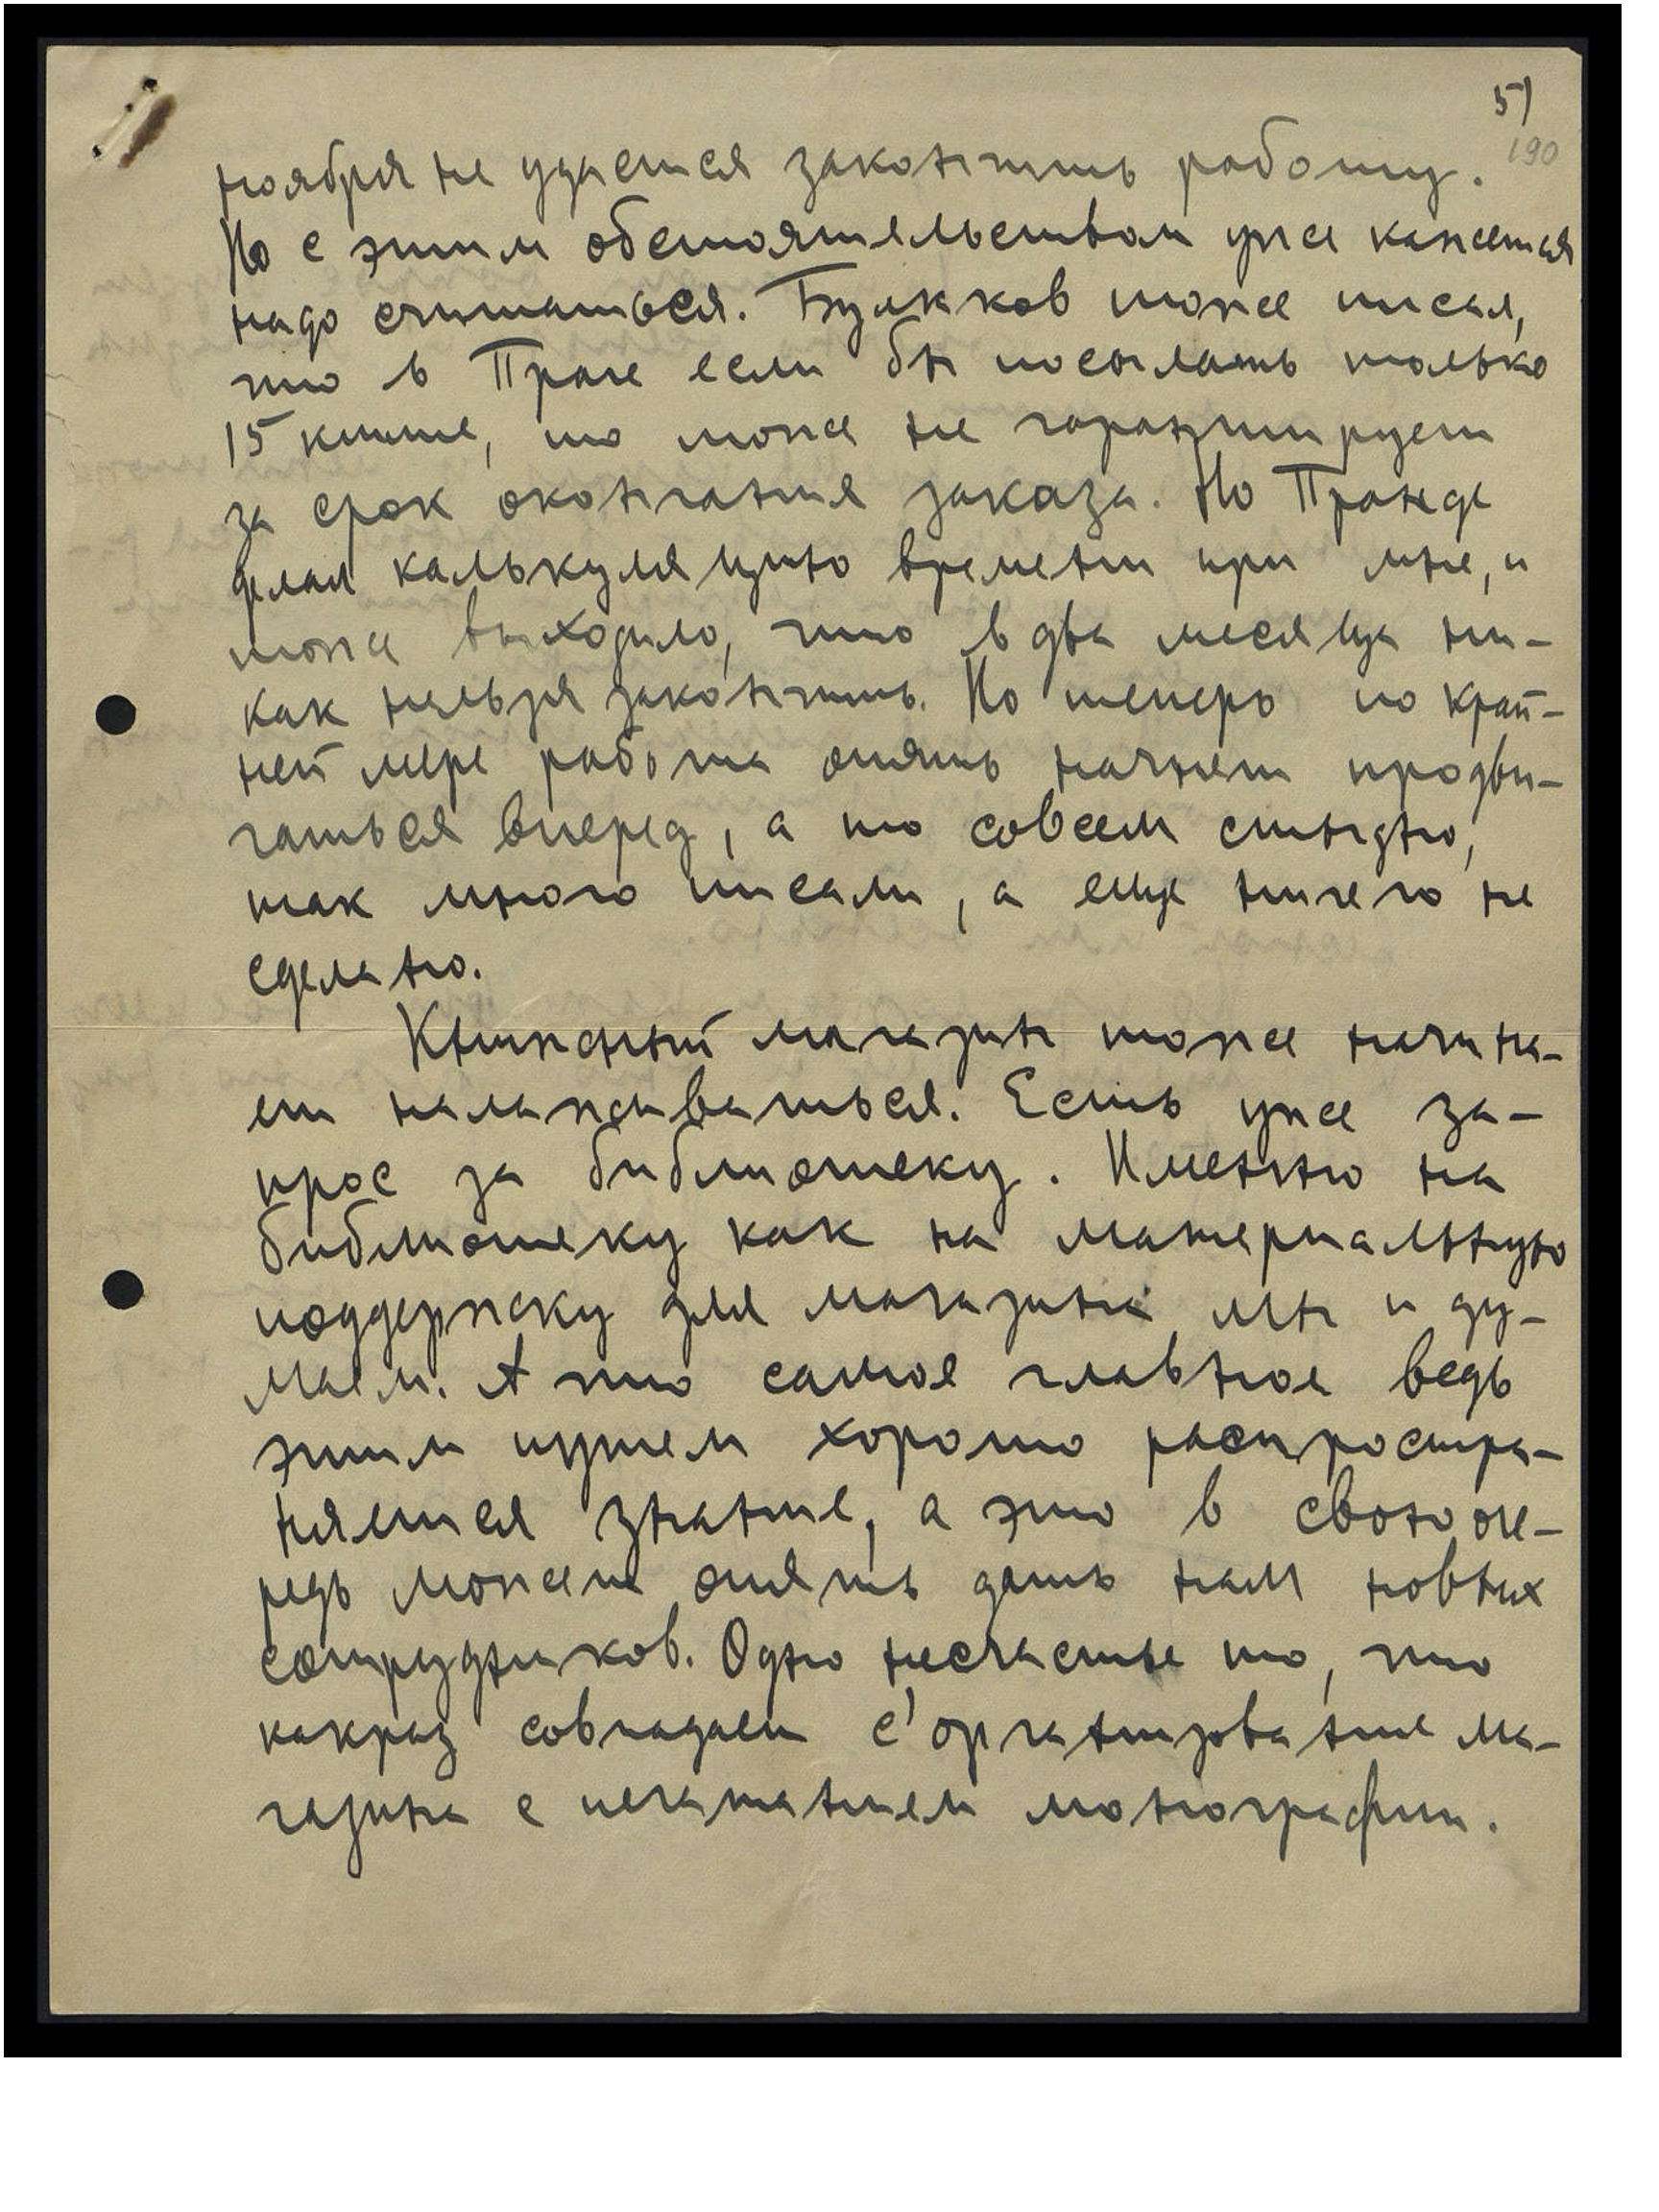 5)
190
ноября не удается закончить работу.
Но с этим обстоятельством уже кажется
надо считаться. Булкков тоже писал,
что в Праге если бы посылать только
15 клише, то тоже не гарантирует
за срок окончания заказа. Но Пранде
делал калькуляцию времени при мне, и
тоже выходило, что в два месяца ни-
как нельзя закончить. Но теперь по край-
ней мере работа опять начнет продви-
гаться вперед, а то совсем стыдно,
так много писали, а еще ничего не
сделано.
Книжный магазин тоже начина-
ет налаживаться. Есть уже за-
прос за библиотеку. Именно на
библиотеку как на материальную
поддержку для магазина мы и ду-
маем. А что самое главное ведь
этим путем хорошо распростра-
няется знание, а это в свою оче-
редь может опять дать нам новых
сотрудников. Одно несчастье то, что
какраз совпадает с' организование ма-
газина с печатанием монографии.